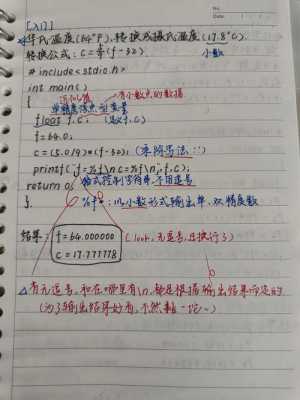 No.
Date
[入门]
华氏温度(64°F),转换成摄氏温度(17.8°C).
转换公式:C=5/9(f-32)
小数
#include<stdio.h>
int main()
{
有小数点的数据
单精度浮点型变量
float f,c; (定义f,c)
f=64.0;
c=(5.0/9)*(f-32); (乘除写法::)
printf("f=%f\n c=%f\n",f,c);
格式控制字符串,不用逗号
return 0;
}
%f:以小数形式输出单、双精度数
结果:
f=64.000000
c=17.777778
(look,无逗号,且换行了)
△有无逗号,和在哪里有\n,都是根据输出结果而定的
(为了输出结果好看,不然黏一坨~)